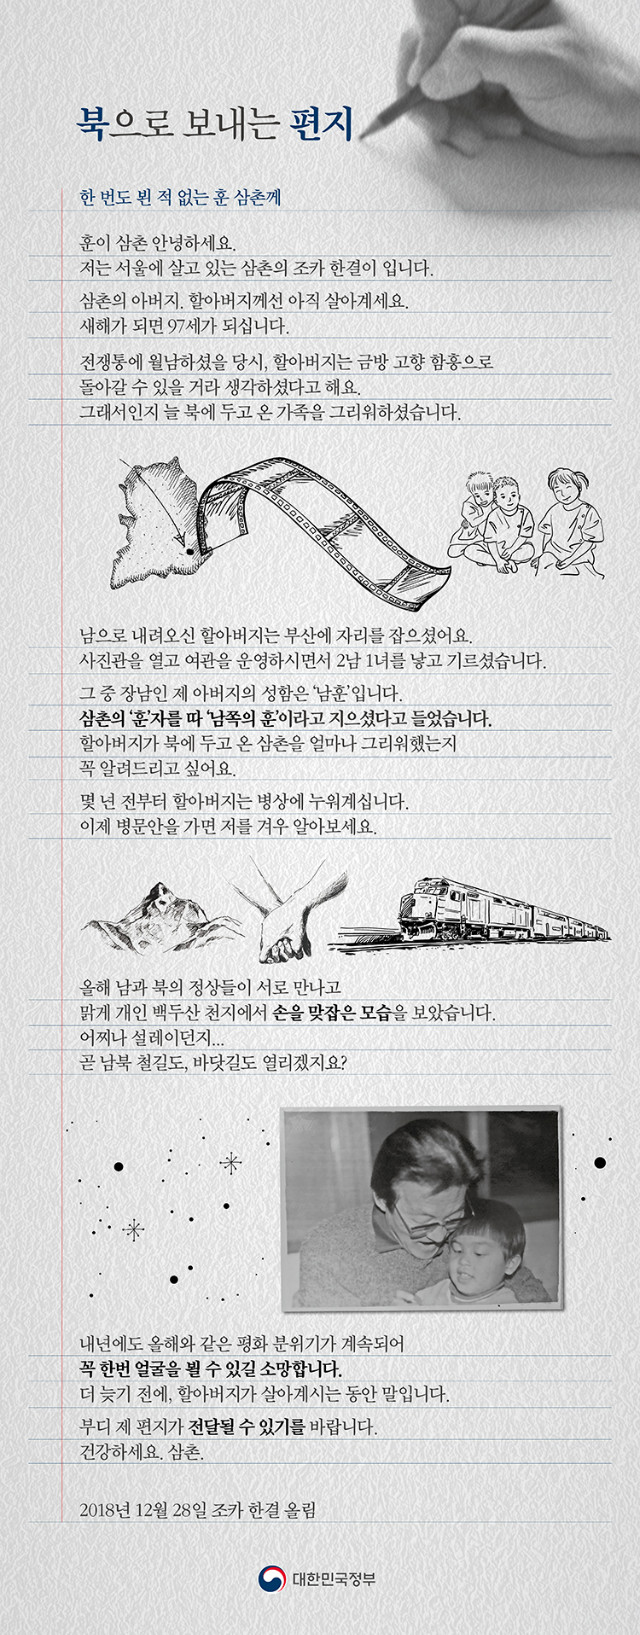 북으로 보내는 편지
한 번도 뵌 적 없는 훈 삼촌께
훈이 삼촌 안녕하세요.
저는 서울에 살고 있는 삼촌의 조카 한결이 입니다.
삼촌의 아버지. 할아버지께선 아직 살아계세요.
새해가 되면 97세가 되십니다.
전쟁통에 월남하셨을 당시, 할아버지는 금방 고향 함흥으로
돌아갈 수 있을 거라 생각하셨다고 해요.
그래서인지 늘 북에 두고 온 가족을 그리워하셨습니다.
남으로 내려오신 할아버지는 부산에 자리를 잡으셨어요.
사진관을 열고 여관을 운영하시면서 2남 1녀를 낳고 기르셨습니다.
그 중 장남인 제 아버지의 성함은 '남훈'입니다.
삼촌의 '훈'자를 따 '남쪽의 훈'이라고 지으셨다고 들었습니다.
할아버지가 북에 두고 온 삼촌을 얼마나 그리워했는지
꼭 알려드리고 싶어요.
몇 년 전부터 할아버지는 병상에 누워계십니다.
이제 병문안을 가면 저를 겨우 알아보세요.
올해 남과 북의 정상들이 서로 만나고
맑게 개인 백두산 천지에서 손을 맞잡은 모습을 보았습니다.
어찌나 설레이던지...
곧 남북 철길도, 바닷길도 열리겠지요?
내년에도 올해와 같은 평화 분위기가 계속되어
꼭 한번 얼굴을 뵐 수 있길 소망합니다.
더 늦기 전에, 할아버지가 살아계시는 동안 말입니다.
부디 제 편지가 전달될 수 있기를 바랍니다.
건강하세요. 삼촌.
2018년 12월 28일 조카 한결 올림
대한민국정부